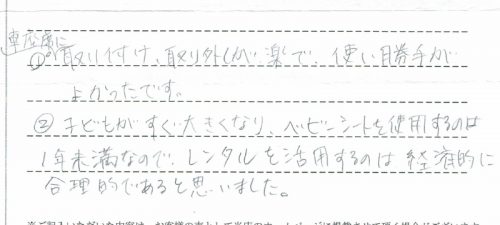 車座席に
①取り付け、取り外しが楽で、使い勝手が
よかったです。
②子どもがすぐ大きくなり、ベビーシートを使用するのは
1年未満なので、レンタルを活用するのは経済的に
合理的であると思いました。